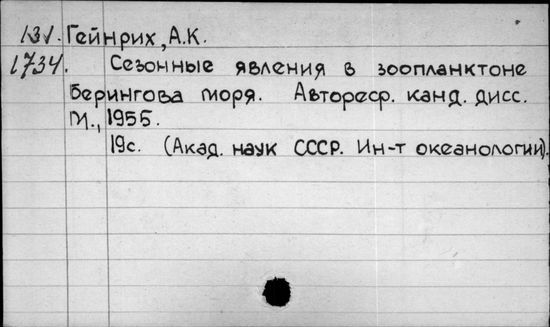 131. Гейнрих, А.К.
1734. Сезонные явления в зоопланктоне
Берингова моря. Автореф. канд. дисс.
М., 1955.
19с. (Акад. наук СССР. Ин-т океанологии).